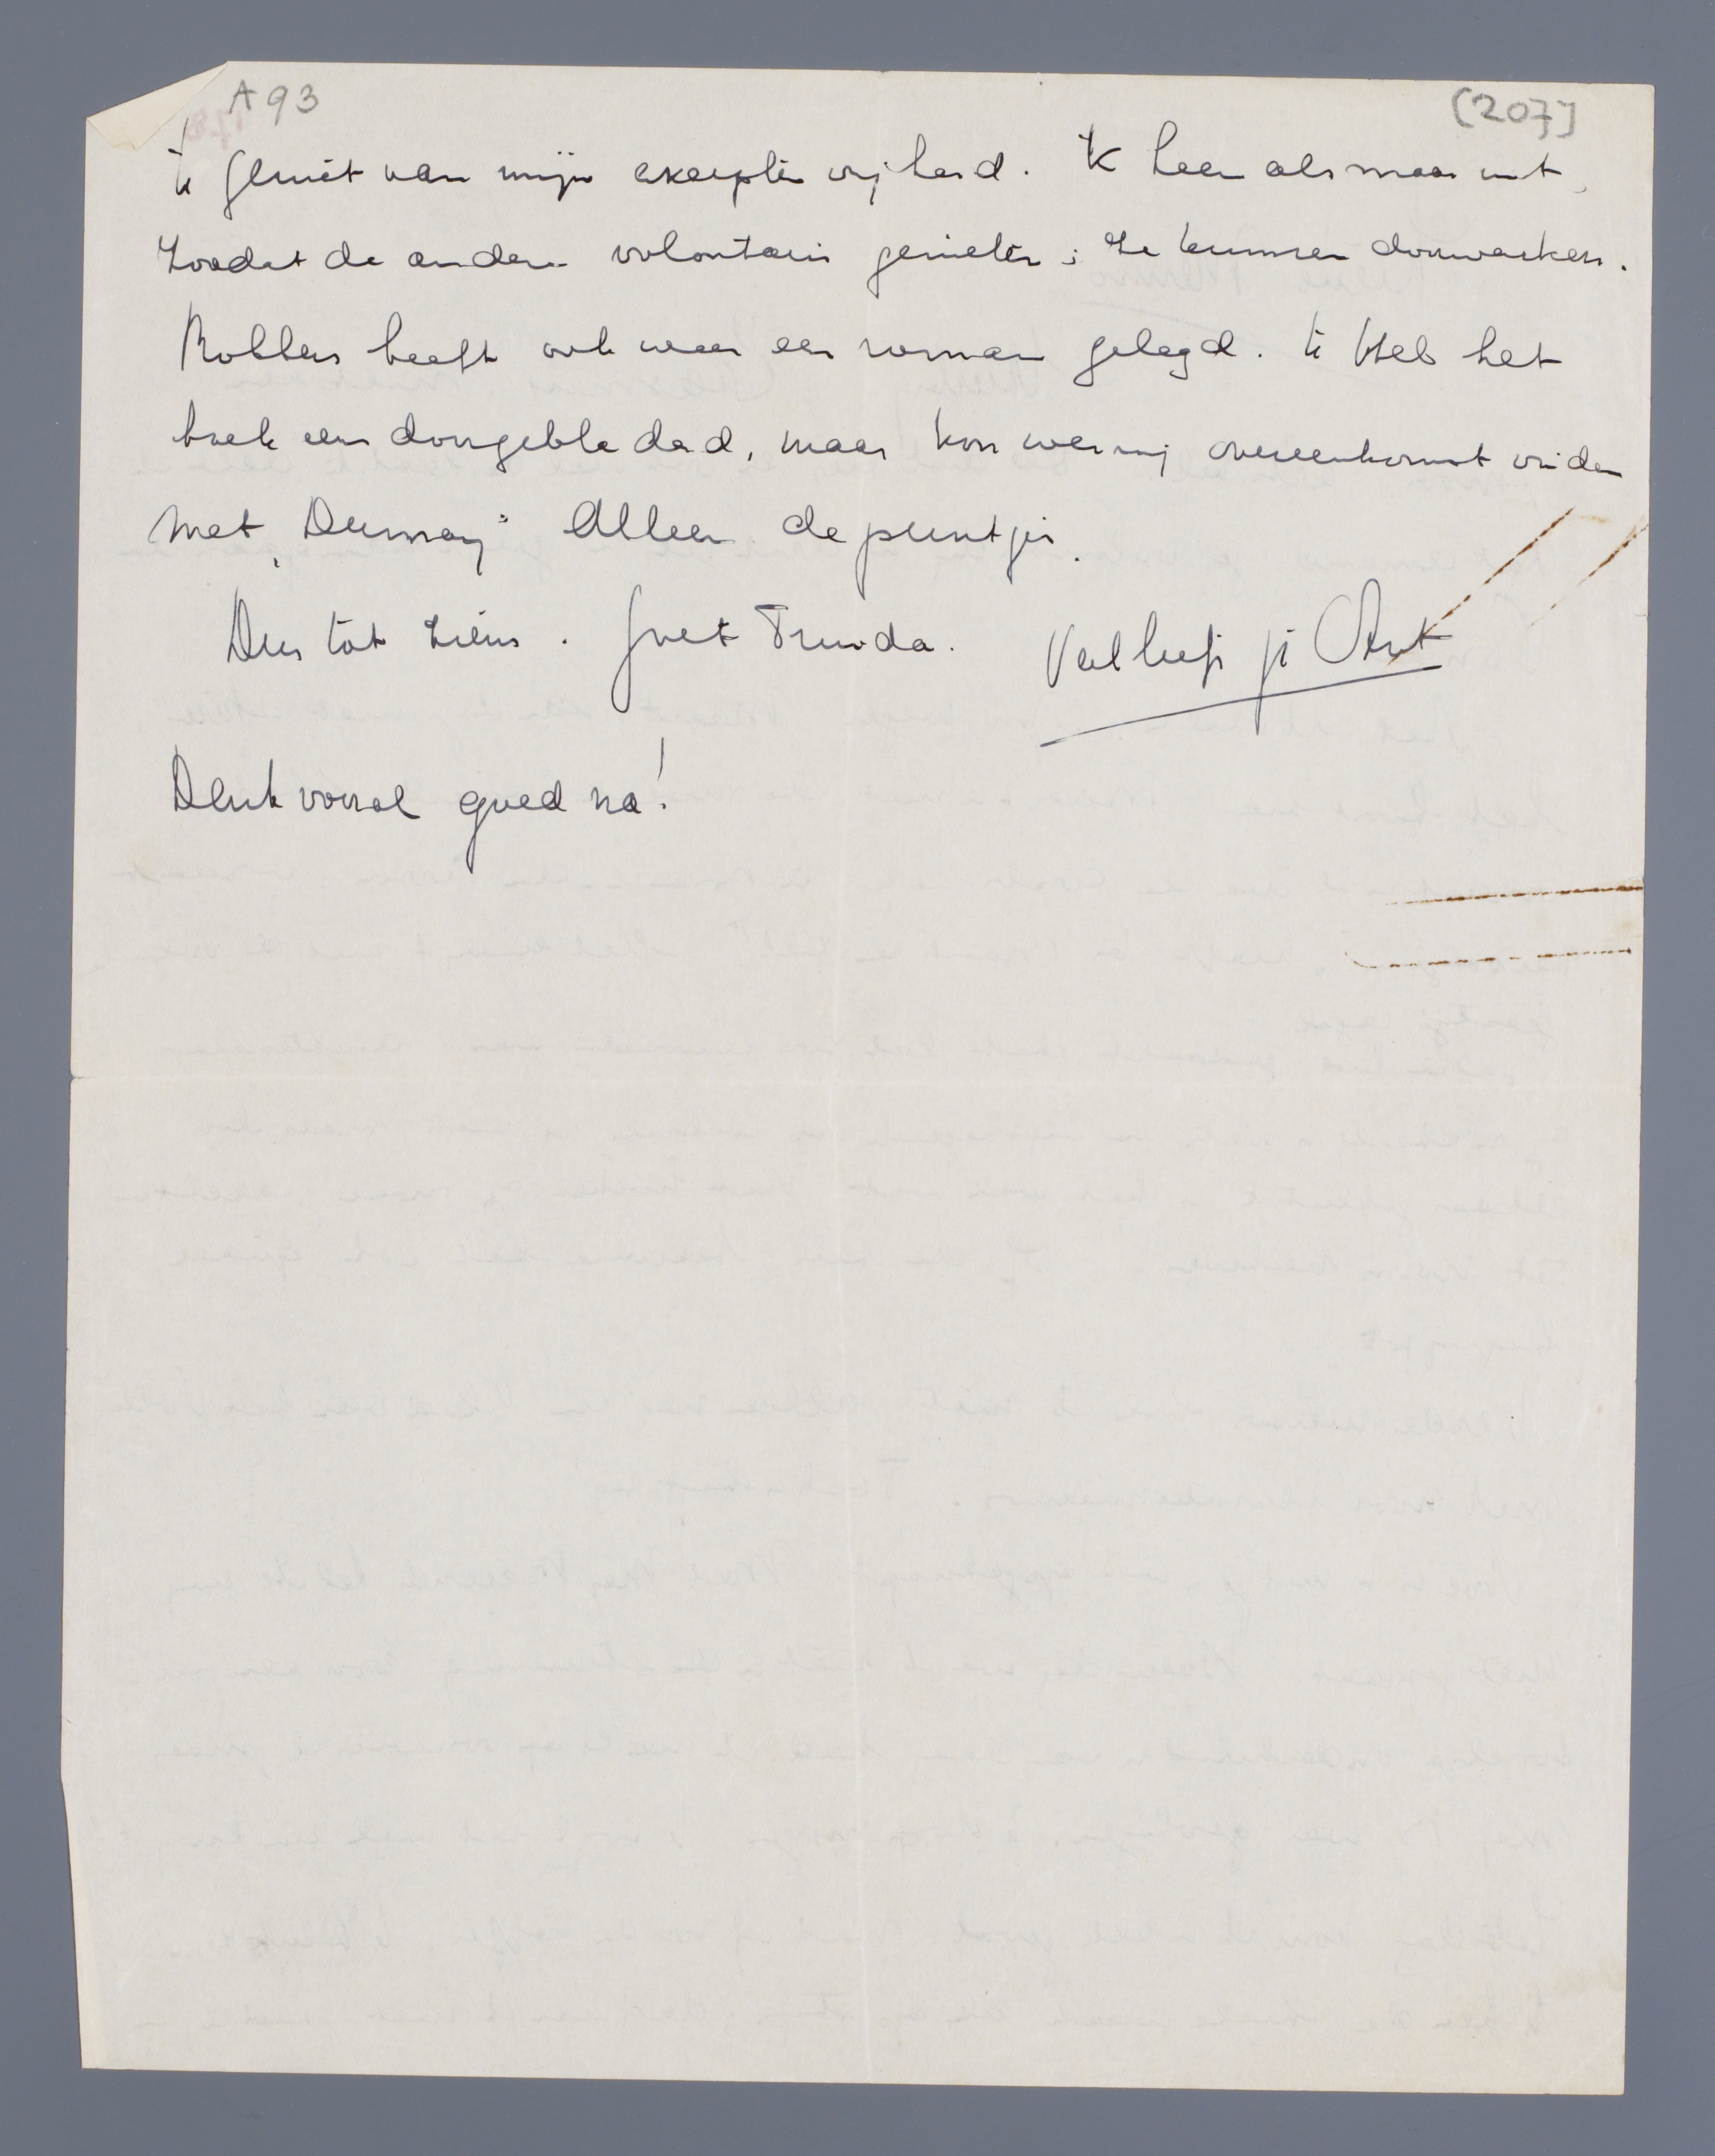 A93
[207]
Ik geniet van mijn examen vrijheid. Ik leen als maar uit,
Zoodat de andere volontairs genieten; Ze kunnen doorwerken.
Robbers heeft ook weer een roman gelegd. Ik Heb het
boek eens doorgebladerd, maar kon weinig overeenkomst vinden
met „Dumay" Alleen de puntjes.
Dus tot ziens. Groet Truida. Veel liefs je Ant
Denk vooral goed na!